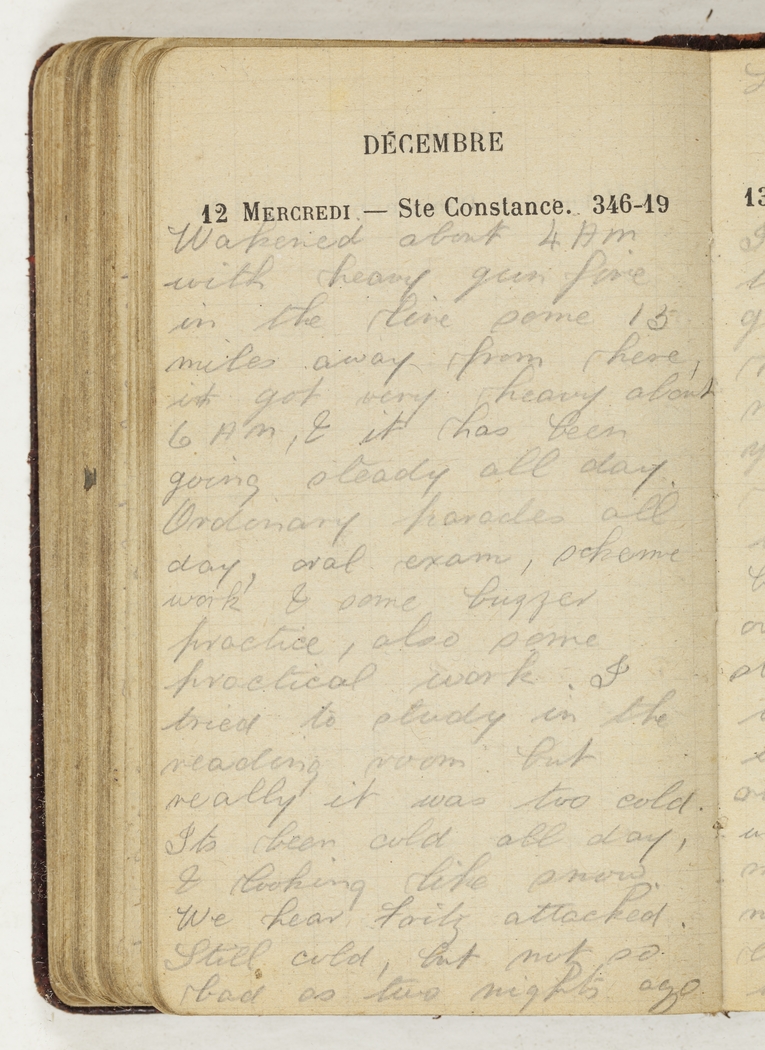 DÉCEMBRE
12 MERCREDI. — Ste Constance. 346-19
Wakened about 4 AM
with heavy gun fire
in the line some 15
miles away from here,
it got very heavy about
6 AM, & it has been
going steady all day.
Ordinary parades all
day, oral exam, scheme
work & some buzzer
practice, also some
practical work. I
tried to study in the
reading room but
really it was too cold.
Its been cold all day,
& looking like snow.
We hear Fritz attacked.
Still cold, but not so
bad as two nights ago.
13